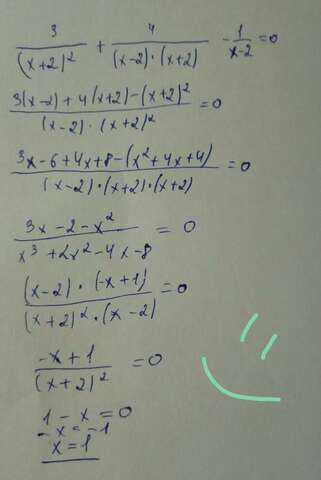 3/(x+2)² + 4/((x-2)·(x+2)) - 1/(x-2) = 0
(3(x-2)+4(x+2)-(x+2)²)/((x-2)·(x+2)²) = 0
(3x-6+4x+8-(x²+4x+4))/((x-2)·(x+2)·(x+2)) = 0
(3x-2-x²)/(x³+2x²-4x-8) = 0
((x-2)·(-x+1))/((x+2)²·(x-2)) = 0
(-x+1)/(x+2)² = 0
1-x=0
-x=-1
x=1